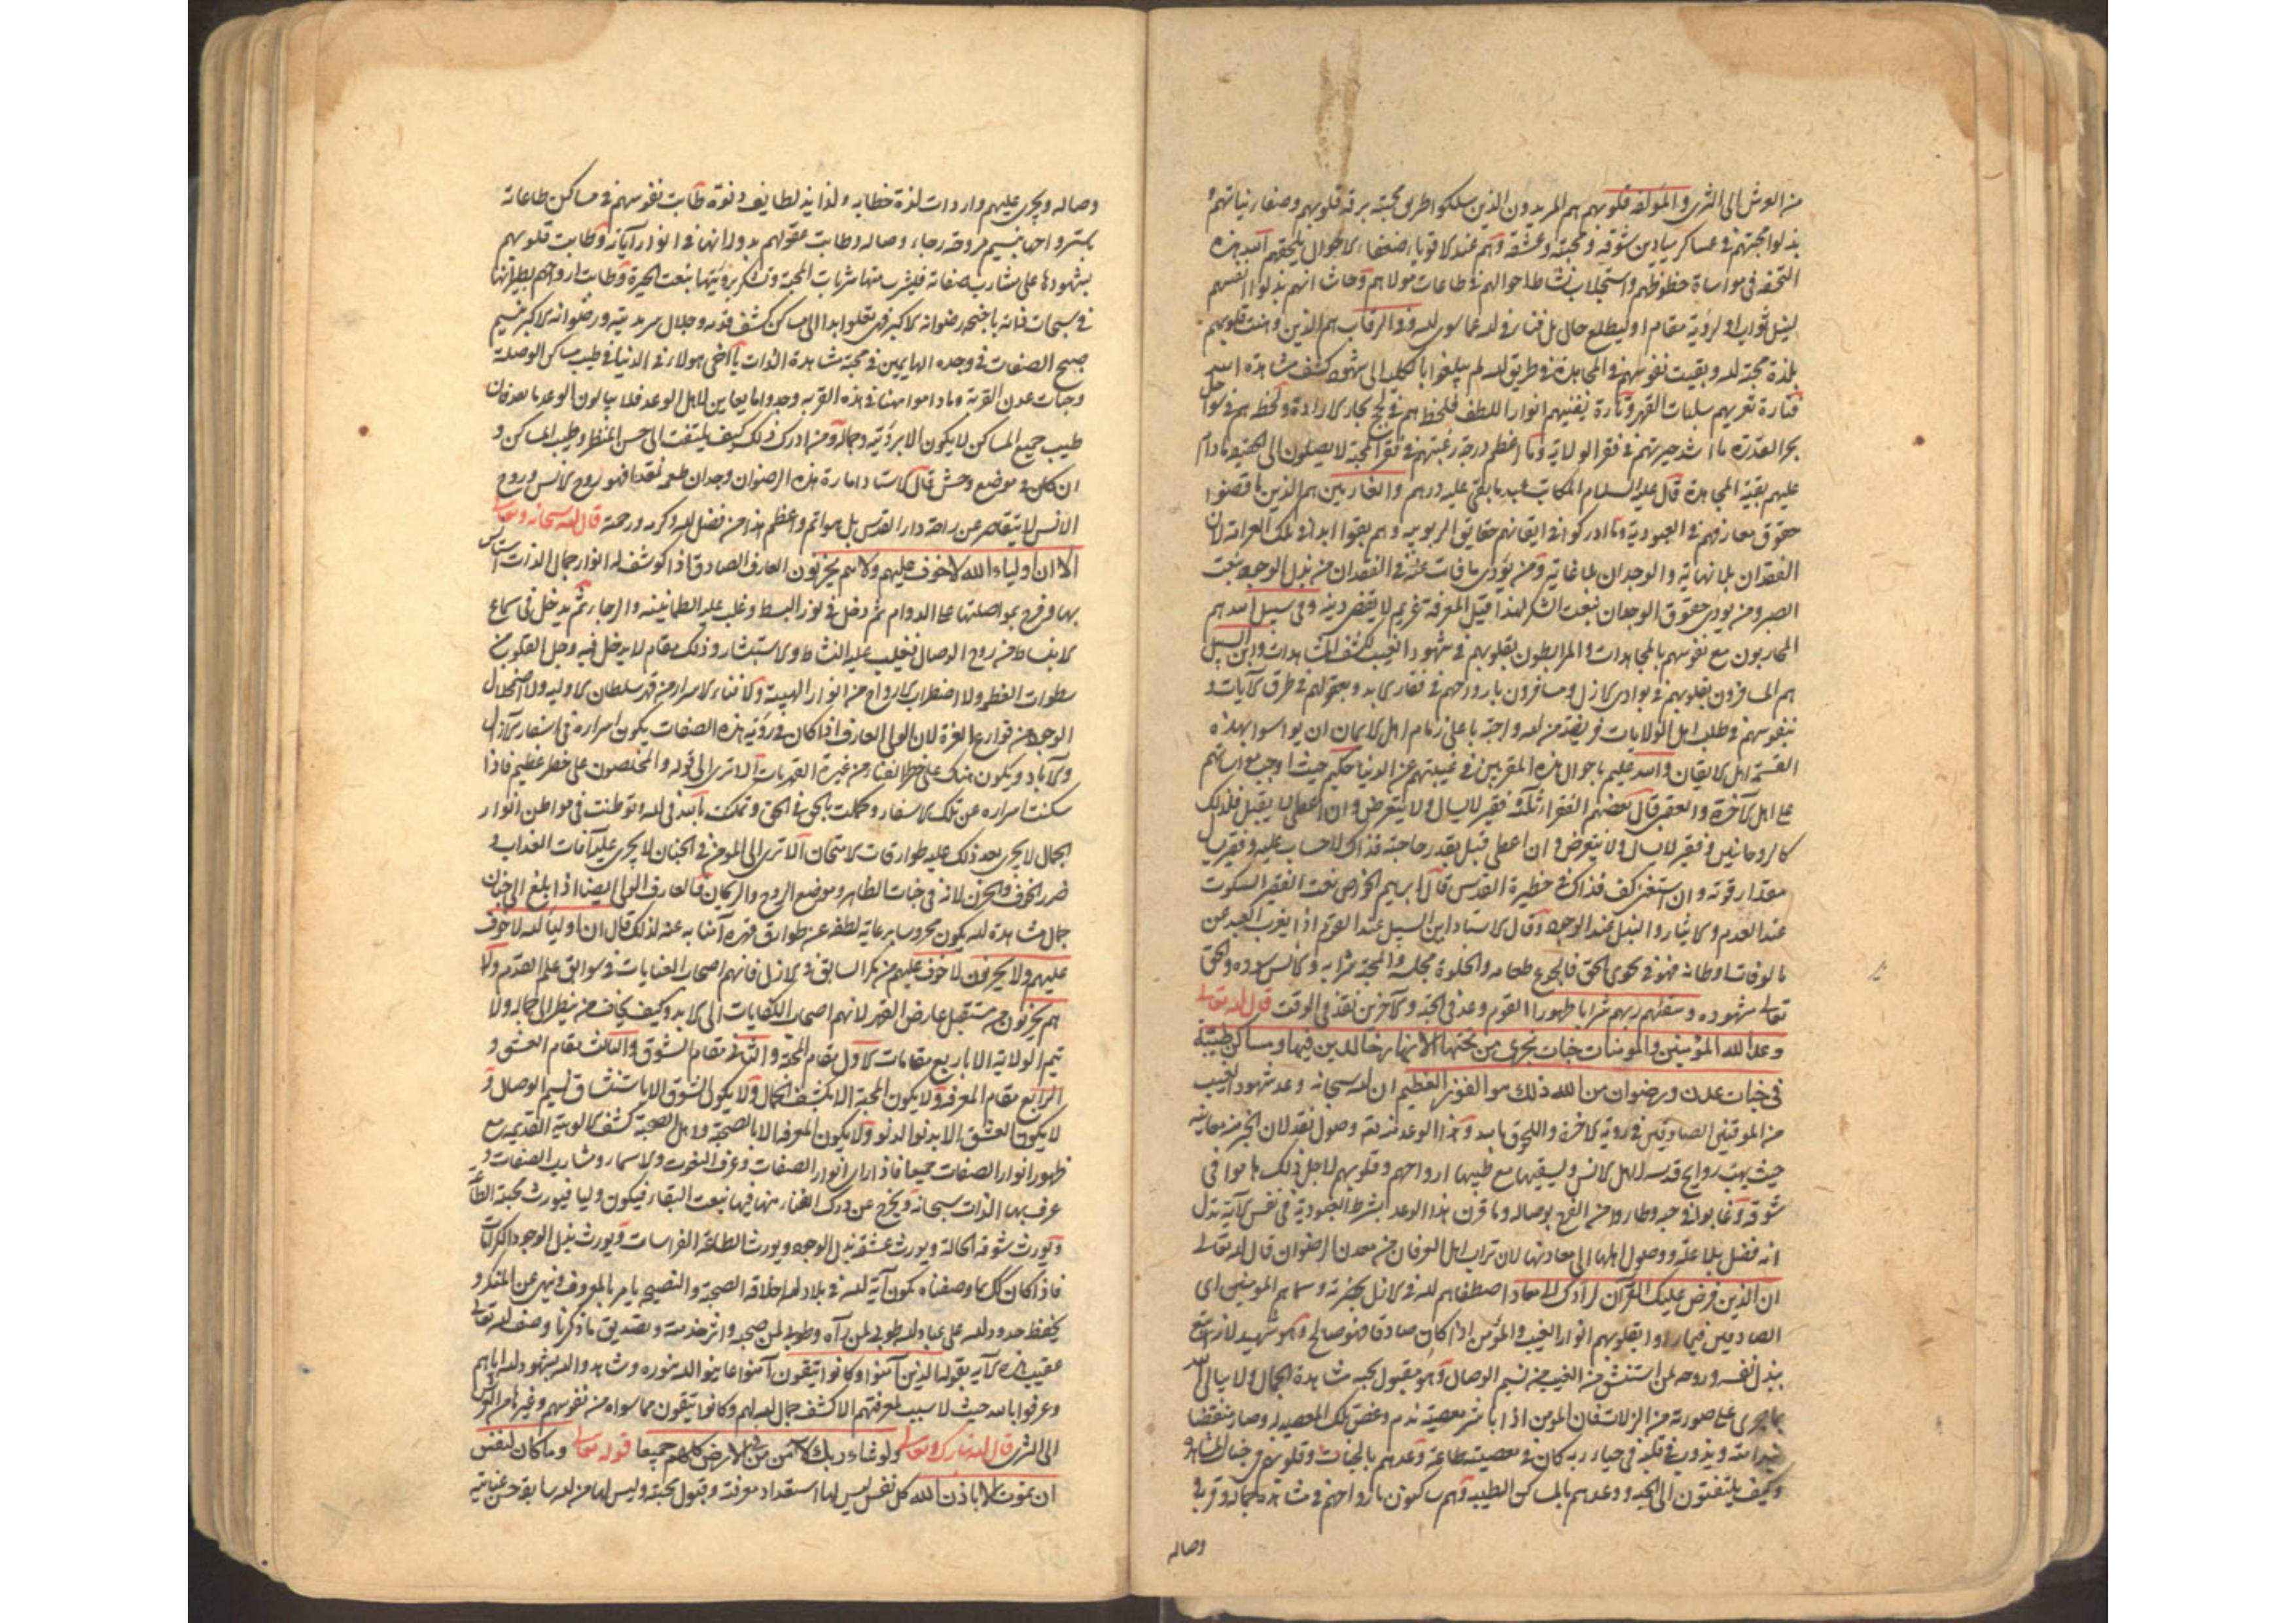 من العرش الى الثرى والمؤلفة قلوبهم هم المريدون الذين سلكوا طريق محبته برقة قلوبهم وصفاء نياتهم و
بذلوا مهجتهم في عساكر ميادين شوقه ومحبته وعشقه وهم عند الاقوياء ضعفاء الاحوال
التحفة في مواساة حظوظهم واستجلاب نشاط احوالهم في طاعات مولاهم وحاشا انهم بذلوا انفسهم
لنيل ثواب او لرؤية مقام او ليطلع حال بل فناء في الله عما سوى الله وفي الرقاب هم الذين رهنت قلوبهم
بلذة محبة الله وبقيت نفوسهم في المجاهدة في طريق الله لم يبلغوا بالكلية الى شهود كشف مشاهدة الله
فتارة تغريهم سلبات القهر وتارة يفنيهم انوار اللطف فلحظاهم في لجج بحار الارادة ولحظاهم في سواحل
بحر القدرة ما اشد حيرتهم في فقر الولاية وما اعظم درجة رغبتهم في فقر المحبة لا يصلون الى الحقيقة ما دام
عليهم بقية المجاهدة قال عليه السلام المكاتب عبد ما بقي عليه درهم والغارمين هم الذين ما قضوا
حقوق معارفهم في العبودية وما ادركوا في ايقانهم حقايق الربوبية وهم بقوا ابدا في تلك الغرامة لان
الفقدان بلا نهاية والوجدان بلا غاية ومن يؤدى ما فات عنه في الفقدان من بذل الوجود بنعت
الصبر ومن يودى حقوق الوجدان بنعت الشكر لهذا قيل المعرفة غريم لا يقضى دينه وفي سبيل الله هم
المحاربون مع نفوسهم بالمجاهدات والمرابطون بقلوبهم في شهود الغيب لكشف المشاهدات وابن السبيل
هم المسافرون بقلوبهم في بوادى الازل ومسافرون بارواحهم في قفار الابد وبعقولهم في طرق الايات و
بنفوسهم في طلب اهل الولايات فريضة من الله واجبة على زمام اهل الايمان ان يواسوا بهذه
القسمة اهل الايقان والله عليم باحوال هذه المقربين في غيبتهم عن الدنيا حكيم حيث اوجب مواساتهم
على اهل الآخرة والعقبى قال بعضهم الفقراء ثلثة فقير لا يسال ولا يتعرض وان اعطى لا يقبل فذلك
كالروحانيين وفقير لا يسال ولا يتعرض وان اعطى قبل بقدر حاجته فذاك لا حساب عليه وفقير يسال
مقدار قوته وان استغنى كف فذاك في حظيرة القدس قال ابرهيم الخواص نعت الفقير السكوت
عند العدم والايثار والبذل عند الوجود وقال الاستاد ابن السبيل عند القوم اذا تغرب العبد عن
مالوفات اوطانه فهو في قرى الحق فالجوع طعامه والخلوة مجلسه والمحبة شرابه والانس شهوده والحق
تعالى مشهوده وسقيهم ربهم شرابا طهورا القوم وعد في الجنة والآخرين نقد في الوقت قال الله تعالى
وعد الله المؤمنين والمؤمنات جنات تجرى من تحتها الانهار خالدين فيها ومساكن طيبة
في جنات عدن ورضوان من الله ذلك هو الفوز العظيم ان الله سبحانه وعد شهود الغيب
من الموقنين الصادقين في روية الآخرة واللحوق بالله وهذا الوعد منه تعالى وصول نقد لان الخبر من معاينة
حيث يهب روايح قدسه الى اهل الانس ويسقيها مع طيبها ارواحهم وقلوبهم لاجل ذلك هاموا في
شوقه وغابوا في حبه وطاروا من الفرح بوصاله وما قرن هذا الوعد بشرط العبودية في نفس الآية تدل
انه فضل بلا علة ووصول اهلها الى معادنها لان تراب اهل العرفان من معدن الرضوان قال الله تعالى
ان الذى فرض عليك القرآن لرادك الى معاد اصطفاهم الله في الازل بحضرته وسماهم المومنين اى
الصادقين فيما راوا بقلوبهم انوار الغيب والمؤمن اذا كان صادقا فهو صالح وهو شهيد لانه
بذل نفسه وروحه لمن استنشق من الغيب من نسيم الوصال وهو مقبول بحبه مشاهدة الجمال ولا يبالى الله
بما جرى على صورته من الزلات فان المومن اذا باشر معصية ندم وبغض تلك المعصية وصار
ندامته ويذوب قلبه في حياء ربه كان في معصيته طاعة وعدهم بالجنات وقلوبهم في جنان المشاهدة
وكيف يلتفتون الى الجنة ووعدهم بالمساكن الطيبة وهم ساكنون بارواحهم في مشاهدة جماله وقرب
وصاله
وصاله ويجرى عليهم واردات لذة خطابه ولذايذ لطايف دنوه طابت نفوسهم في مساكن طاعاته
باستر واحها بنسيم مروحة رجاء وصاله وطابت عقولهم بدورانها في انوار آياته وطابت قلوبهم
بشهودها على مشارب صفاته فيشرب منها شربات المحبة وتسكر برؤيتها بنعت الحيرة وطابت ارواحهم بطيرانها
في سبحات ذاته باجنحة رضوانه الاكبر فهى تعلوا بدا الى مساكن كشف قدمه وجلال سرمديته ورضوانه الاكبر نسيم
صبح الصفات في وجده الهايمين في محبة مشاهدة الذات يا اخى هولاء في الدنيا في طيب مساكن الوصلة
وجنات عدن القربة وما داموا هنا في هذه القربة وجدوا ما يعاين لاهل الوعد فلا يبالون الوعد بعد فان
طيب جميع المساكن لا يكون الا برؤيته وجماله ومن ادرك ذلك كيف يلتفت الى حسن المنظر وطيب المساكن و
ان كان في موضع وحش قال الاستاد امارة هذه الرضوان وجدان طعمه نقدا فهو روح الانس وروح
الانس لا يتقاصر عن راحة دار القدس بل هو اتم واعظم هذا من فضل الله وكرمه ورحمته قال الله سبحانه وتعالى
الا ان اولياء الله لا خوف عليهم ولا هم يحزنون العارف الصادق اذا كوشف له انوار جمال الذات استانس
بها وفرح بمواصلتها على الدوام ثم دخل في نور البسط وغلب عليه الطمانينة والرجاء ثم يدخل في سماع
الانبساط من روح الوصال فغلب عليه النشاط والاستبشار وذلك مقام لا يدخل فيه وجل القلوب من
سطوات العظمة ولا اضطراب الارواح من انوار الهيبة ولا فناء الاسرار من قهر سلطان الاولية ولا اضمحلال
الوجود من قوارع العزة لان الولى العارف اذا كان في رؤية هذه الصفات يكون اسراره في اسفار الآزال
والآباد ويكون هناك على خطر الفناء من غيرة القهريات الا ترى الى قوله والمخلصون على خطر عظيم فاذا
سكنت اسراره عن تلك الاسفار وكملت بالحق في الحق وتمكنت بالله في الله وتوطنت في مواطن انوار
الجمال لا يجرى بعد ذلك عليه طوارقات الامتحان الا ترى الى المومن في الجنان لا يجرى عليه آفات العذاب و
ضرر الخوف والحزن لانه في جنات الطاهر وموضع الروح والريحان فالعارف الولى ايضا اذا بلغ الى جنان
جمال مشاهدة الله يكون محروسا برعاية لطفه عن طوارق قهره آمنا به عنه لذلك قال ان اولياء الله لا خوف
عليهم ولا يحزنون لا خوف عليهم من مكر السابق في الازل فانهم اصحاب العنايات في سوابق علم القدم ولا
هم يحزنون من مستقبل عارض القهر لانهم اصحاب الكفايات الى الابد وكيف يخاف من ينظر الى جماله ولا
تتم الولاية الا باربع مقامات الاول مقام المحبة والثاني مقام الشوق والثالث مقام العشق و
الرابع مقام المعرفة ولا يكون المحبة الا بكشف الجمال ولا يكون الشوق الا باستنشاق نسيم الوصال و
لا يكون العشق الا بدنو الدنو ولا يكون المعرفة الا بالصحبة واصل الصحبة كشف الالوهية القديمة مع
ظهور انوار الصفات جميعا فاذا راى انوار الصفات وعرف النعوت والاسماء ومشارب الصفات و
عرف بها الذات سبحانه ويخرج عن درك الفناء منها فيها بنعت البقاء فيكون وليا فيورث محبته الطاعة
ويورث شوقه الحالة ويورث عشقه بذل الوجود ويورث الطاعة الفراسات ويورث بذل الوجود الكرامات
فاذا كان كل كما وصفناه يكون آية لله في بلاده اخلاقه الصحبة والنصيحة يامر بالمعروف وينهى عن المنكر و
يحفظ حدود الله على عباد الله طوبى لمن رآه وطوبى لمن صحبه واثر خدمته وتصديق ما ذكرنا وصف الله تعالى
عقيب هذه الآية بقوله الذين آمنوا وكانوا يتقون آمنوا عاينوا الله بنوره وشاهدوا الله بشهود الله اياهم
وعرفوا بالله حيث لا سبب لمعرفتهم الا كشف جمال الله لهم وكانوا يتقون مما سواه من نفوسهم وغيرها من العرش
الى الثرى قال الله تبارك وتعالى ولو شاء ربك لآمن من في الارض كلهم جميعا قوله تعالى وما كان لنفس
ان تموت الا باذن الله كل نفس ليس لها استعداد معرفته وقبول محبته وليس لها من الله سابقة حسن عنايته